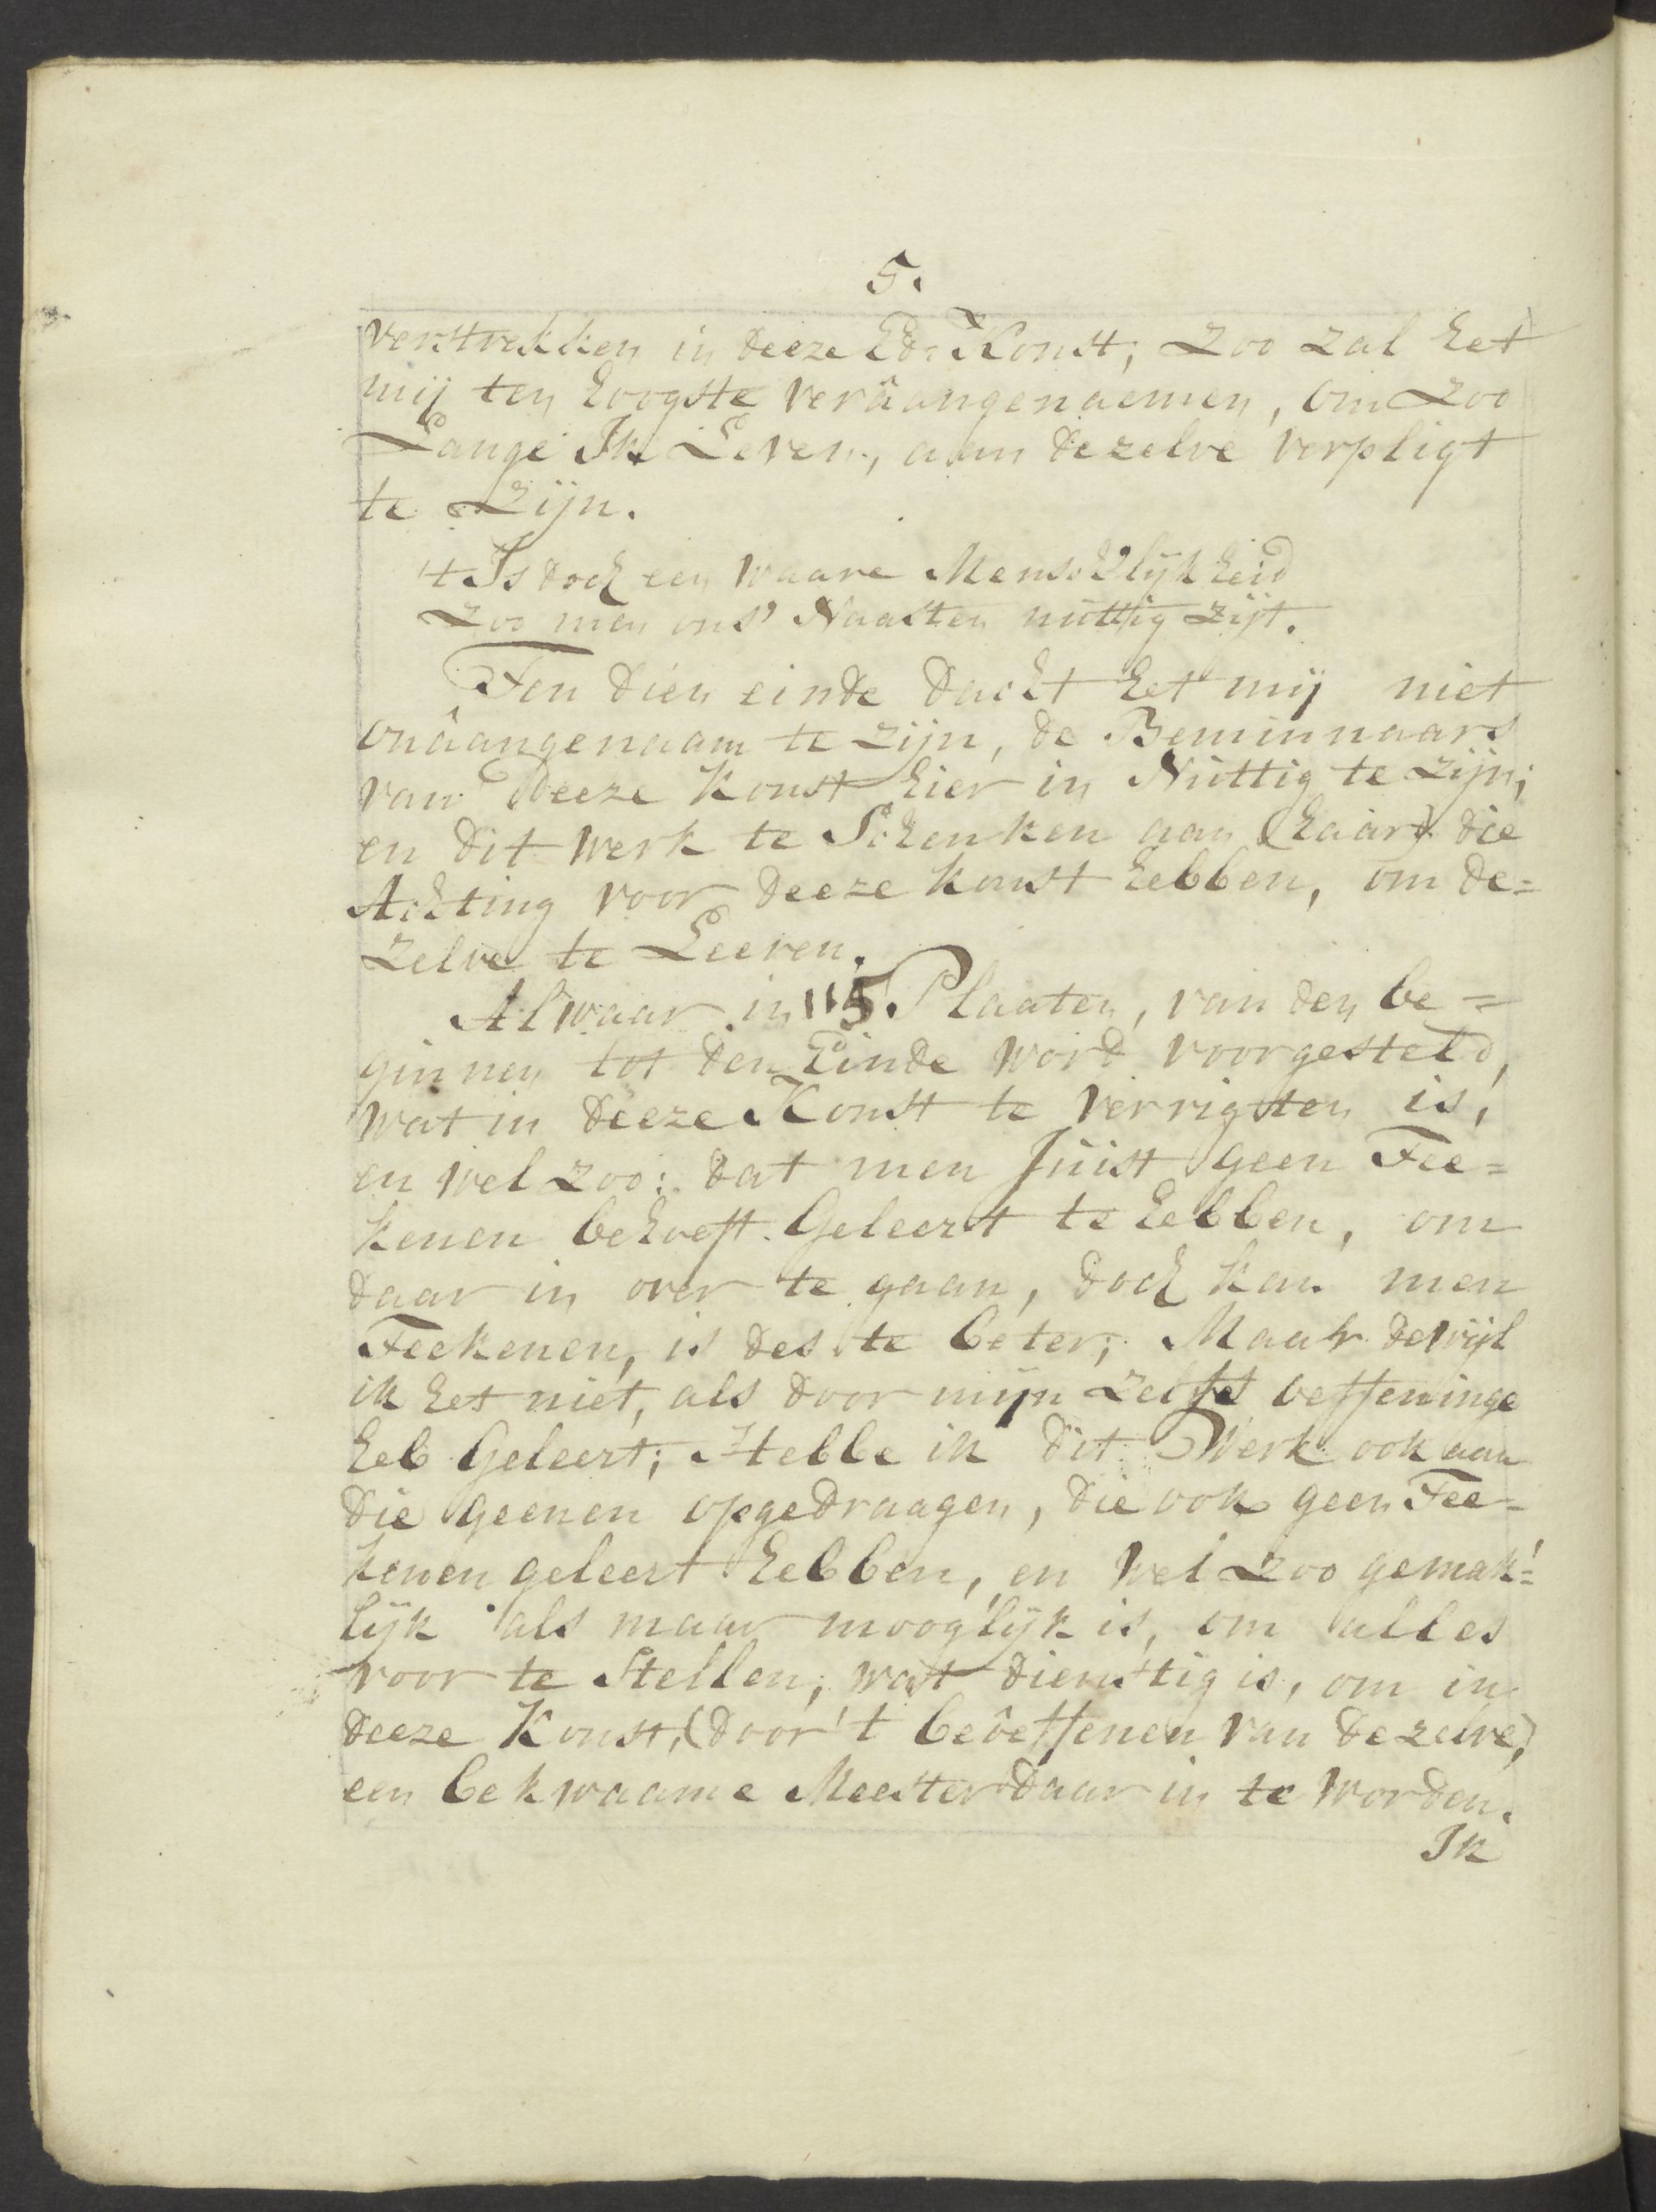 5.
verstrekken in deeze Ed: Konst; zoo zal het
mij ten hoogste verâangenaemen, om zoo
Lange Ik Leven, aan dezelve verpligt
te zijn.
't Is doch een waare Mensch'lijkheid
Zoo men ons' Naasten nuttig zijt.
Ten dien einde dacht het mij niet
onâangenaam te zijn, de Beminnaars
van deeze Konst hier in Nuttig te zijn;
en dit werk te Schenken aan (haar) die
Achting voor deeze konst hebben, om de=
zelve te Leeren.
Alwaar in 115. Plaaten, van den be=
ginnen tot den Einde word voorgesteld,
wat in deeze Konst te verrigten is,
en wel zoo: dat men Juist geen Tee=
kenen behoeft Geleert te hebben, om
daar in over te gaan, doch kan men
Teekenen, is des te beter; Maar dewijl
ik het niet, als door mijn zelfs oeffeninge
heb Geleert; Hebbe ik dit Werk ook aan
die geenen opgedraagen, die ook geen Tee=
kenen geleert hebben, en wel zoo gemak'=
lijk als maar moog'lijk is, om alles
voor te Stellen; wat dienstig is, om in
deeze Konst, (door 't beôeffenen van dezelve,)
een bekwaame Meester daar in te worden.
Ik